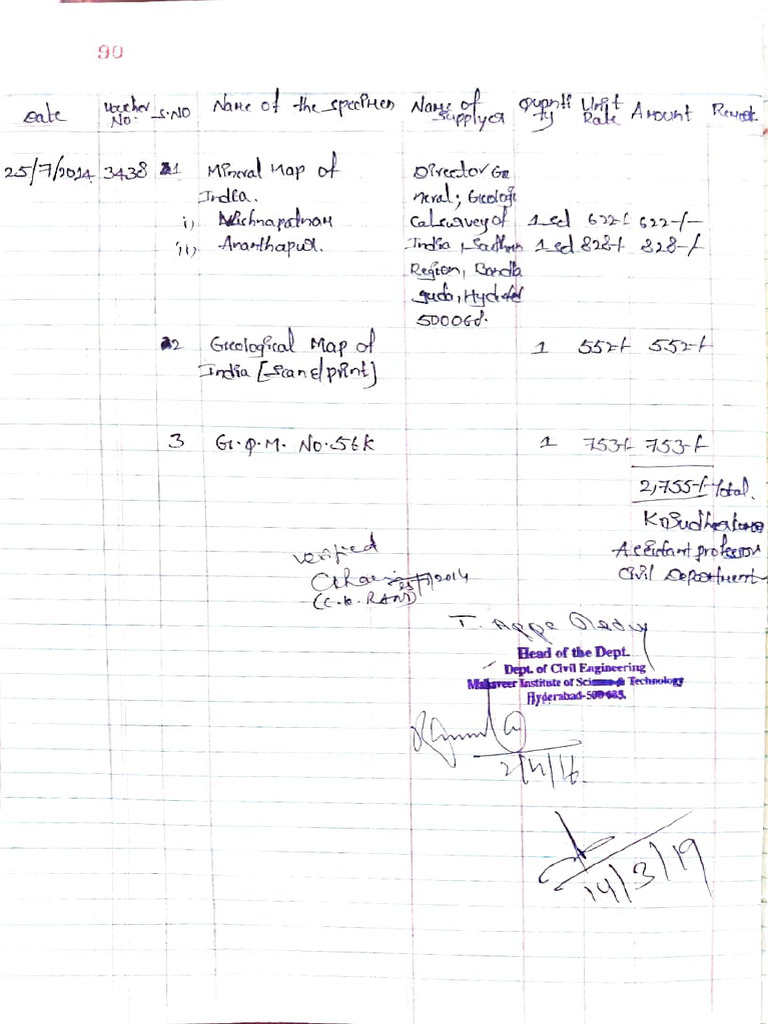 90
Date Voucher No. S.NO Name of the specimen Name of Supplyer Quanti ty Unit Rate Amount Remark
25/7/2014 3438 1 Mineral Map of Director Ge
India. neral; Geologi
i) Krishnapatnam cal survey of 1 sd 622-/- 622-/-
ii) Ananthapur. India, Southern 1 sd 828-/- 828-/-
Region, Bandla
guda, Hyd
500068.
2 Geological Map of 1 552-/- 552-/-
India [scan/print]
3 G.Q.M. No. 56K 1 753-/- 753-/-
2,755-/- Total.
Assistant professor
verified Civil Department
25/7/2014
T. Appa Reddy
Head of the Dept.
Dept. of Civil Engineering
Mahaveer Institute of Science & Technology
Hyderabad-500
14/3/19